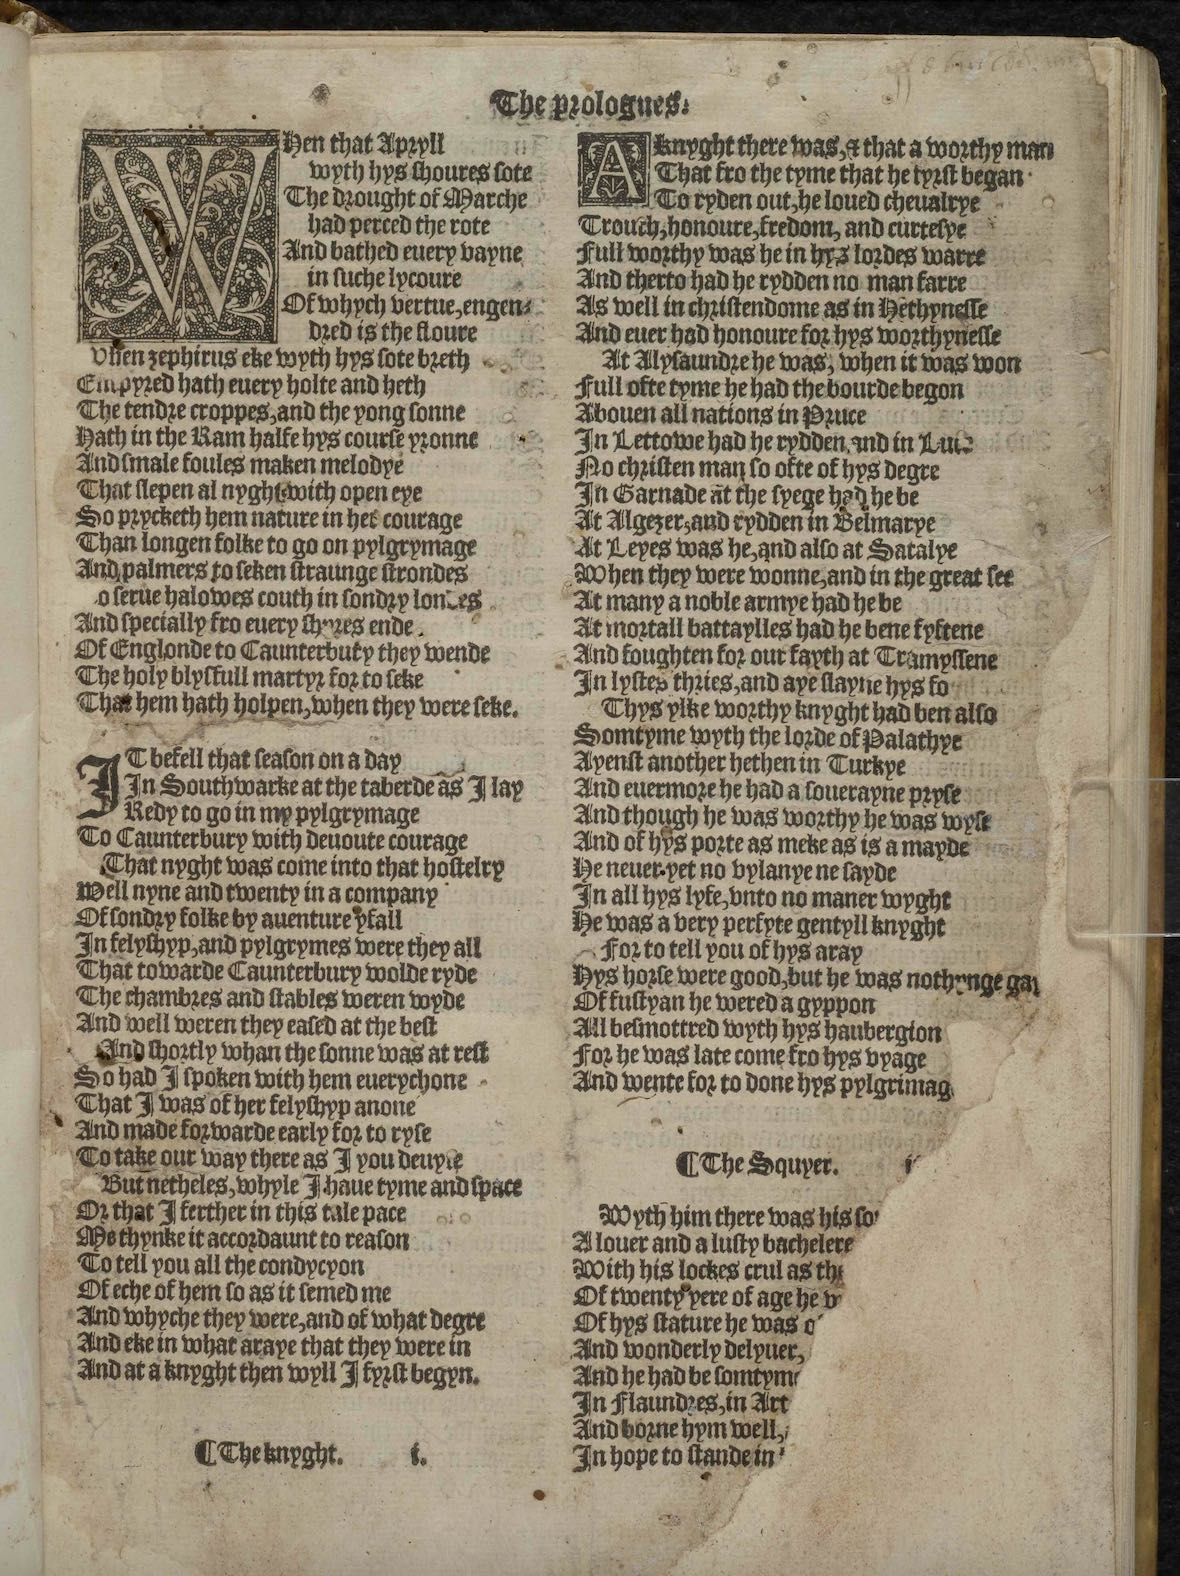 The prologues:
WHen that Apryll
wyth hys shoures sote
The drought of Marche
had perced the rote
And bathed euery vayne
in suche lycoure
Of whych vertue, engen-
dred is the floure
when zephirus eke wyth hys sote breth
Empyred hath euery holte and heth
The tendre croppes, and the yong sonne
Hath in the Ram halfe hys course yronne
And smale foules maken melodye
That slepen al nyght with open eye
So prycketh hem nature in her courage
Than longen folke to go on pylgrymage
And palmers to seken straunge strondes
o serue halowes couth in sondry londes
And specially fro euery shyres ende
Of Englonde to Caunterbury they wende
The holy blysfull martyr for to seke
That hem hath holpen, when they were seke.
IT befell that season on a day
In Southwarke at the taberde as I lay
Redy to go in my pylgrymage
To Caunterbury with deuoute courage
That nyght was come into that hostelry
Well nyne and twenty in a company
Of sondry folke by auenture yfall
In felyshyp, and pylgrymes were they all
That towarde Caunterbury wolde ryde
The chambres and stables weren wyde
And well weren they eased at the best
And shortly whan the sonne was at rest
So had I spoken with hem euerychone
That I was of her felyshyp anone
And made forwarde early for to ryse
To take our way there as I you deuyse
But netheles, whyle I haue tyme and space
Or that I ferther in this tale pace
Me thynke it accordaunt to reason
To tell you all the condycyon
Of eche of hem so as it semed me
And whyche they were, and of what degre
And eke in what araye that they were in
And at a knyght then wyll I fyrst begyn.
¶ The knyght. i.
A knyght there was, & that a worthy man
That fro the tyme that he fyrst began
To ryden out, he loued cheualrye
Trouth, honoure, fredom, and curtesye
Full worthy was he in hys lordes warre
And therto had he rydden no man farre
As well in christendome as in Hethynesse
And euer had honoure for hys worthynesse
At Alysaundre he was, when it was won
Full ofte tyme he had the bourde begon
Abouen all nations in Pruce
In Lettowe had he rydden, and in
No christen man so ofte of hys degre
In Garnade at the syege had he be
At Algezer, and rydden in Belmarye
At Leyes was he, and also at Satalye
When they were wonne, and in the great see
At many a noble armye had he be
At mortall battaylles had he bene fyftene
And foughten for our fayth at Tramyssene
In lystes thries, and aye slayne hys fo
Thys ylke worthy knyght had ben also
Somtyme wyth the lorde of Palathye
Ayenst another hethen in Turkye
And euermore he had a souerayne pryse
And though he was worthy he was wyse
And of hys porte as meke as is a mayde
He neuer yet no vylanye ne sayde
In all hys lyfe, vnto no maner wyght
He was a very perfyte gentyll knyght
For to tell you of hys aray
Hys horse were good, but he was nothynge gay
Of fustyan he wered a gyppon
All besmottred wyth hys haubergion
For he was late come fro hys vyage
And wente for to done hys pylgrimag
¶ The Squyer. i
Wyth him there was his so
A louer and a lusty bachelere
With his lockes crul as the
Of twenty yere of age he
Of hys stature he was
And wonderly delyuer,
And he had be somtyme
In Flaundres, in Art
And borne hym well,
In hope to stande in